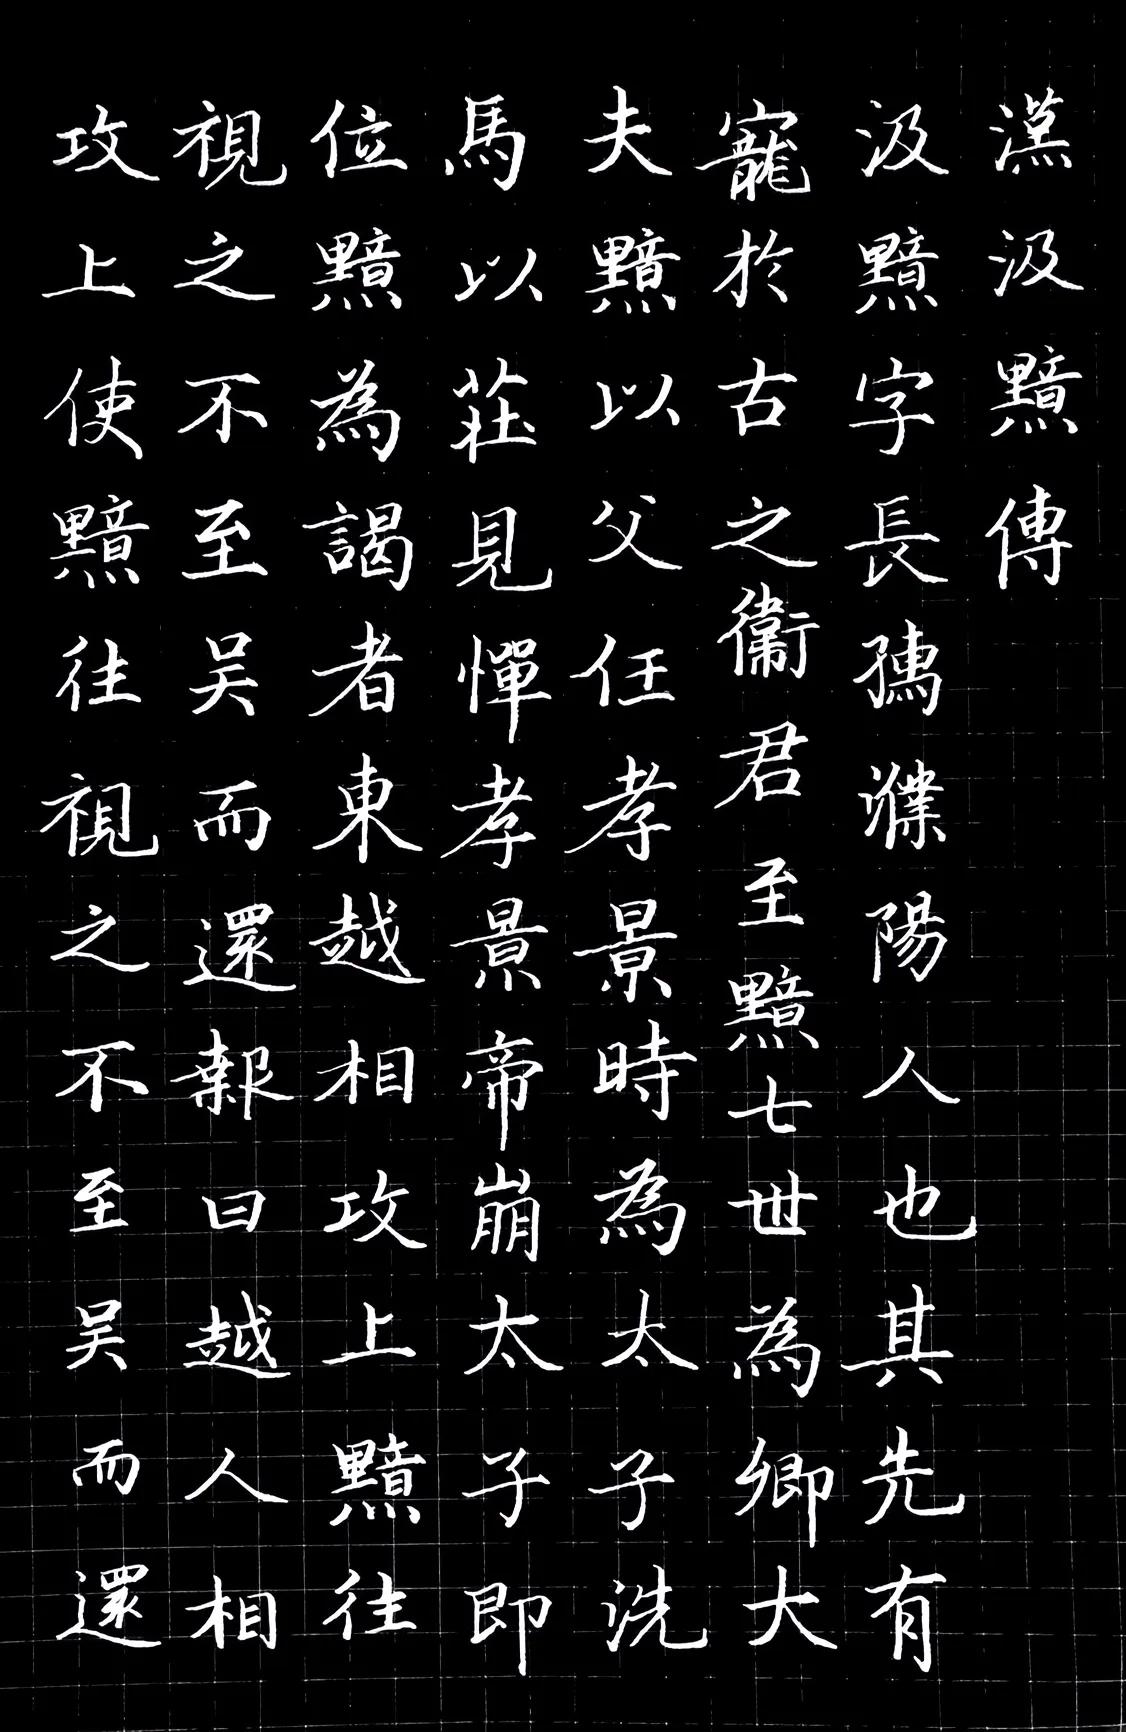 漢汲黯傳
汲黯字長孺濮陽人也其先有
寵於古之衛君至黯七世為卿大
夫黯以父任孝景時為太子洗
馬以莊見憚孝景帝崩太子即
位黯為謁者東越相攻上黯往
視之不至吳而還報曰越人相
攻上使黯往視之不至吳而還